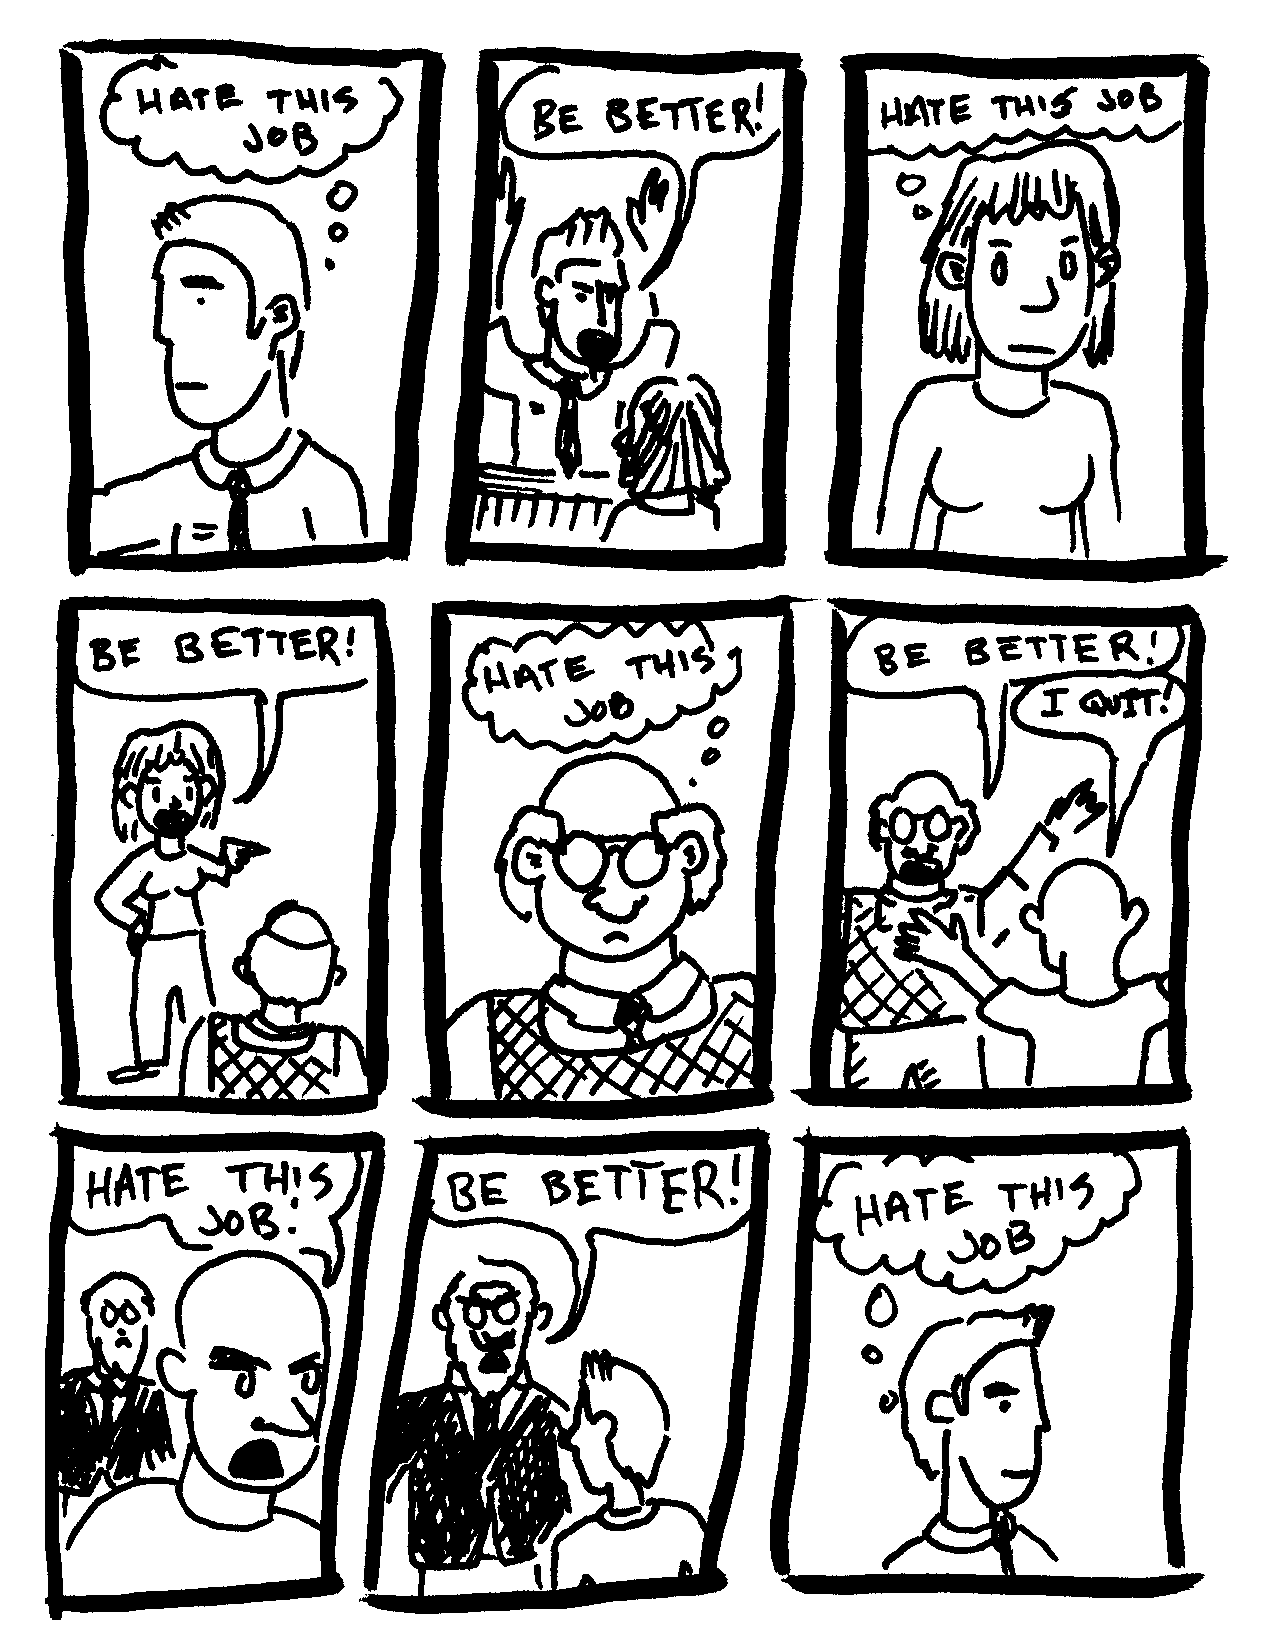 HATE THIS
JOB
BE BETTER!
HATE THIS JOB
BE BETTER!
HATE THIS
JOB
BE BETTER!
I QUIT!
HATE THIS
JOB!
BE BETTER!
HATE THIS
JOB